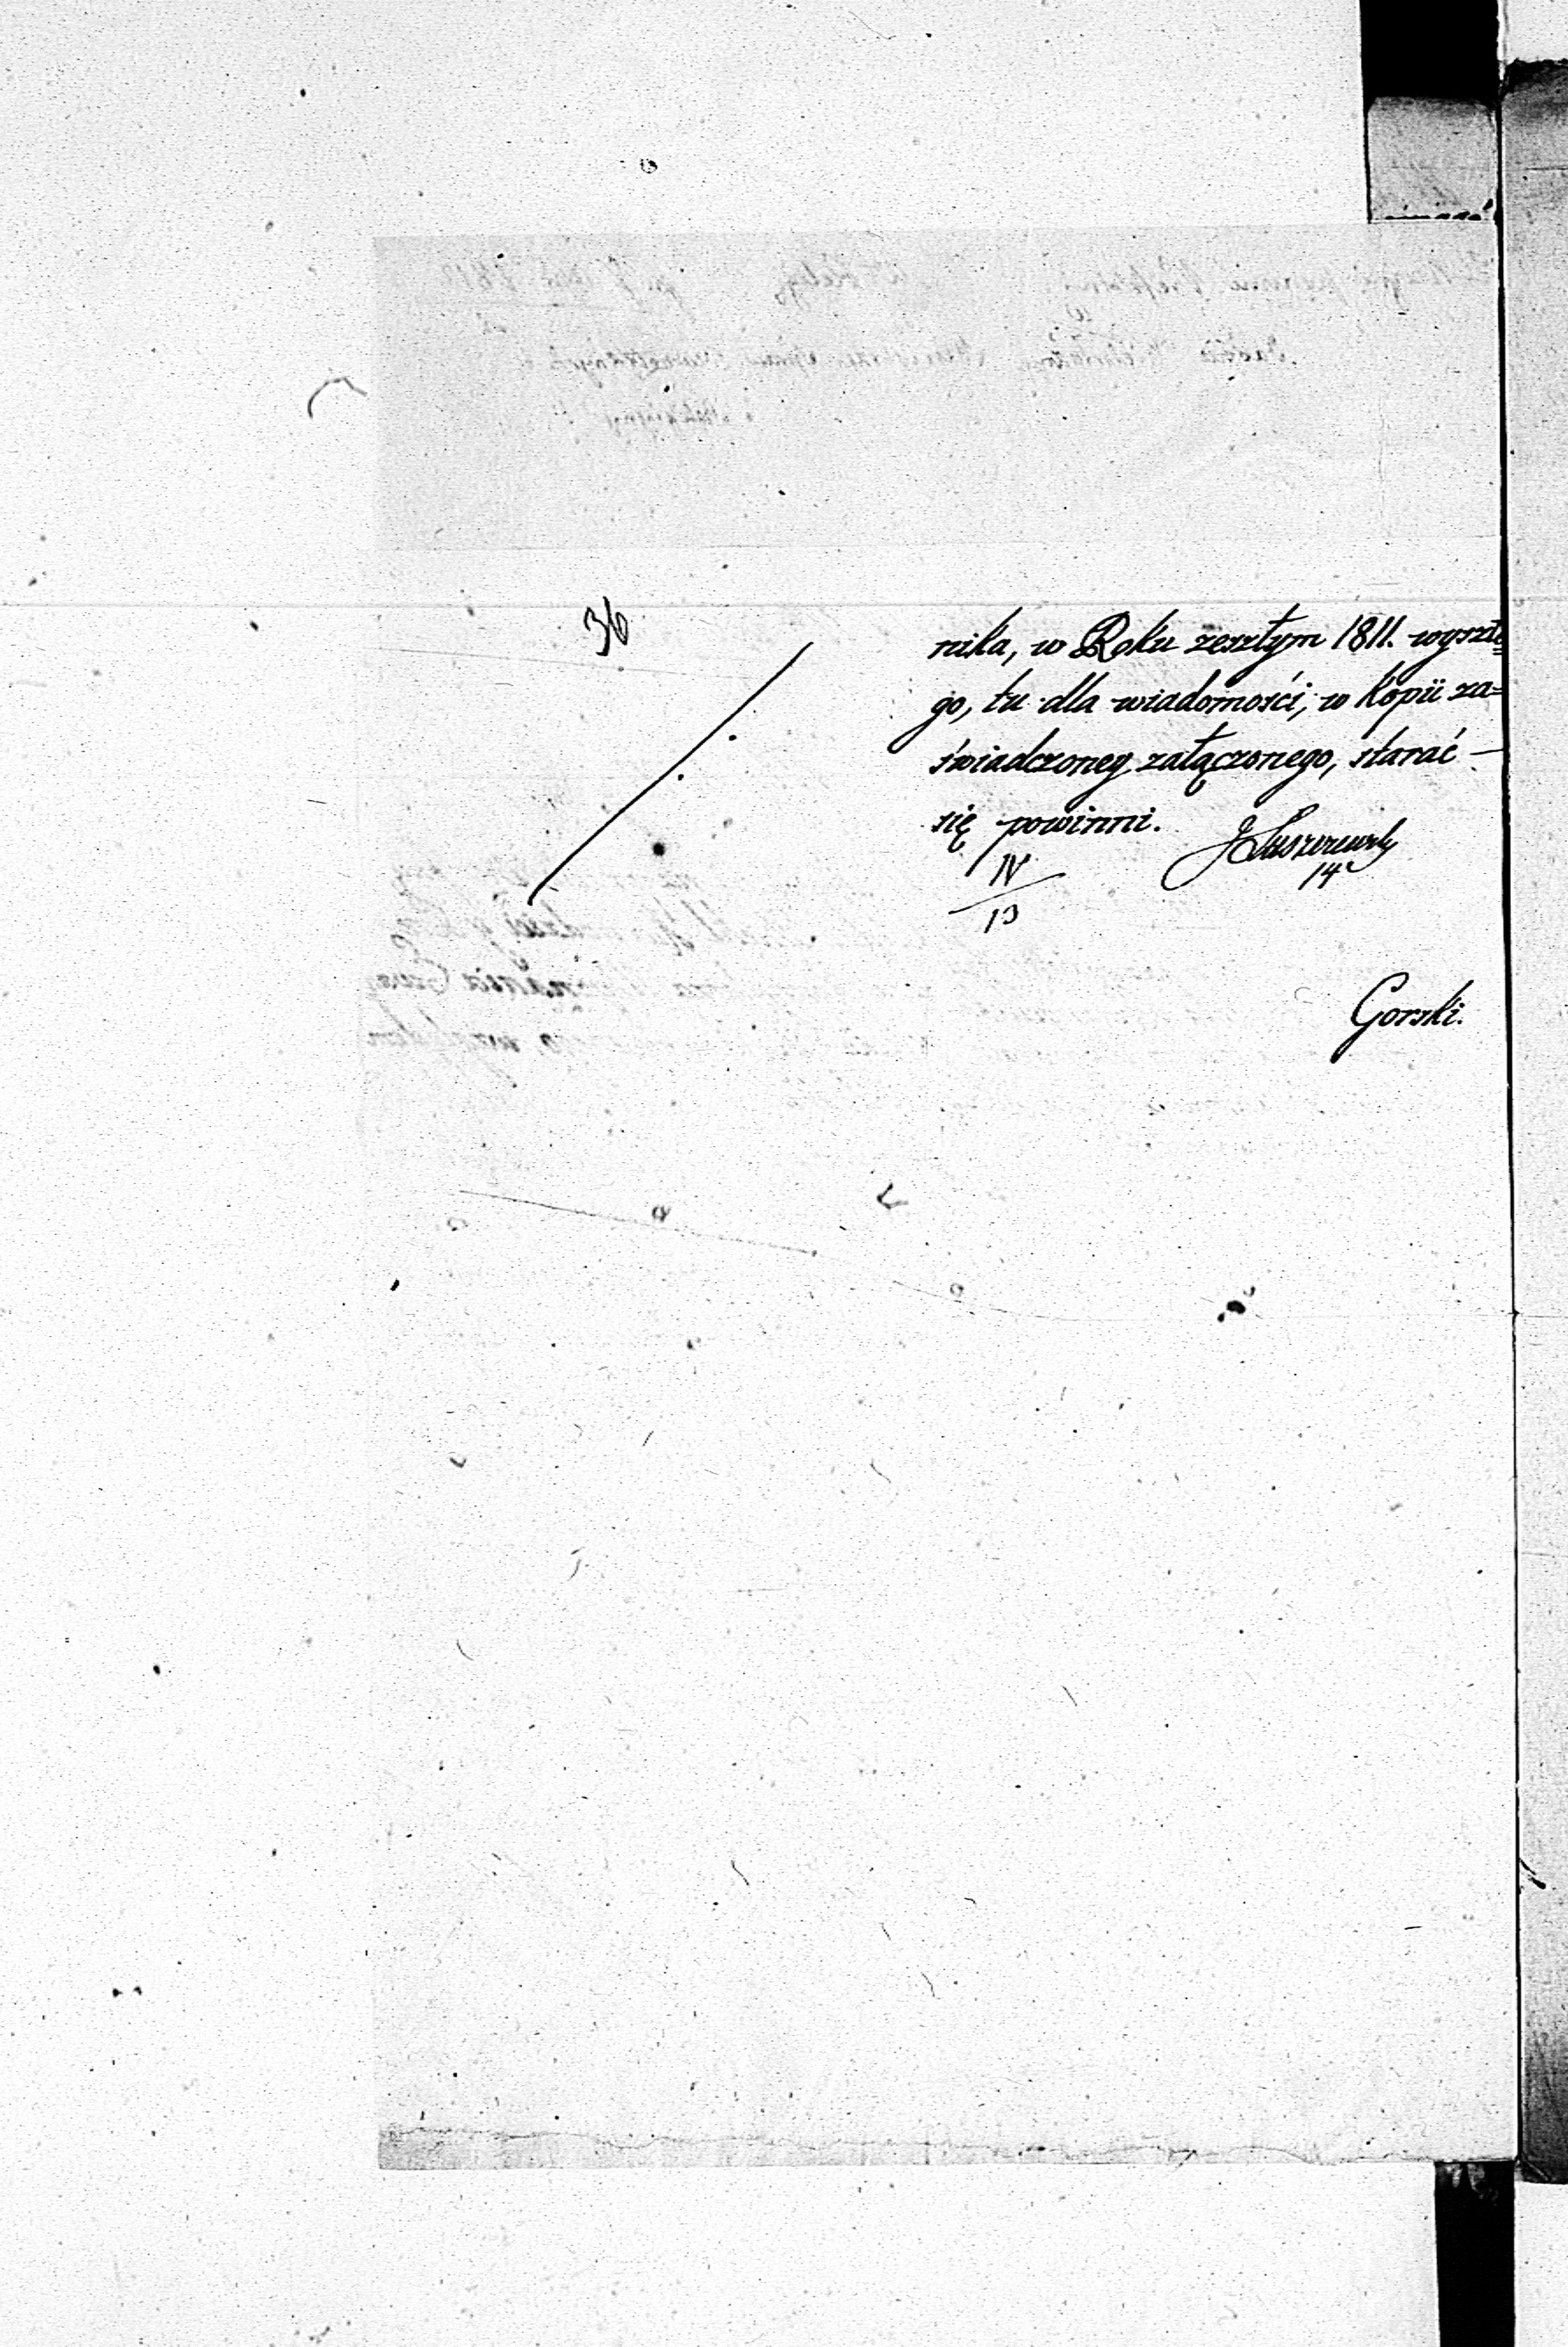 36
nika, w Roku zeszłym 1811. wyszłe=
go, tu dla wiadomości, w Kopii za=
świadczoney załączonego, starać —
się powinni.
IV
13
14
Gorski.